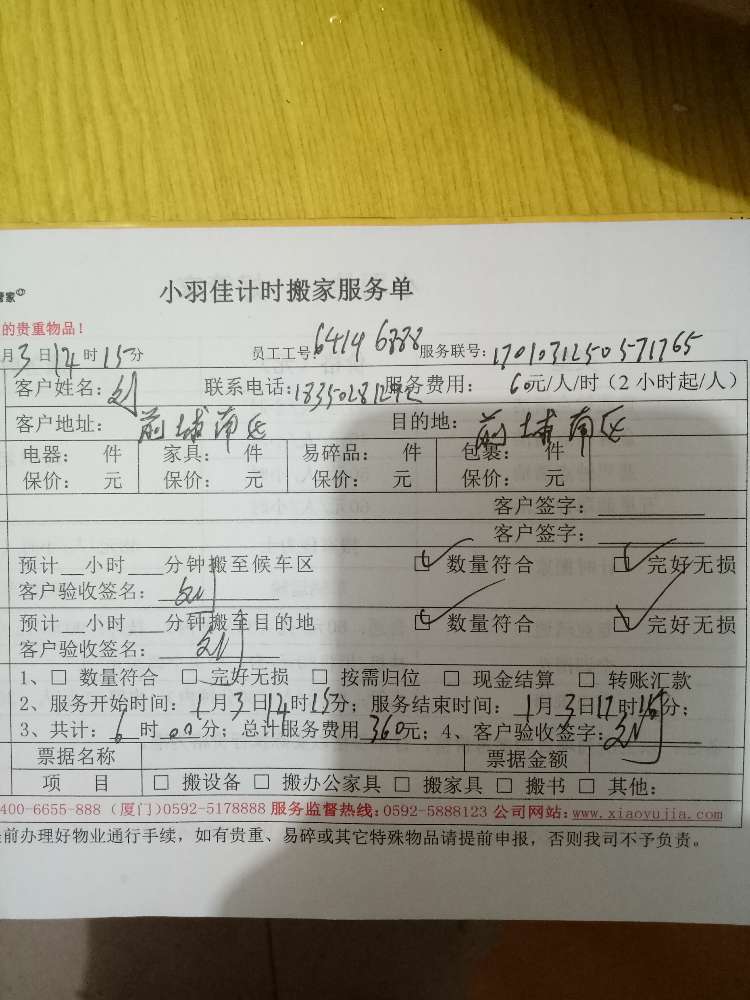 管家
小羽佳计时搬家服务单
的贵重物品！
月3日14时15分 员工工号: 64146888 服务联号: 1701031250571765
客户姓名: 刘 联系电话: 18350281292 服务费用: 60元/人/时（2小时起/人）
客户地址: 前埔南区 目的地: 前埔南区
电器: 件 家具: 件 易碎品: 件 包裹: 件
保价: 元 保价: 元 保价: 元 保价: 元
客户签字:
客户签字:
预计__小时___分钟搬至候车区 ☑ 数量符合 ☑ 完好无损
客户验收签名:
预计__小时___分钟搬至目的地 ☑ 数量符合 ☑ 完好无损
客户验收签名:
1、□ 数量符合 □ 完好无损 □ 按需归位 □ 现金结算 □ 转账汇款
2、服务开始时间: 1月3日14时15分; 服务结束时间: 1月3日17时15分;
3、共计: 6时00分; 总计服务费用360元; 4、客户验收签字:
票据名称 票据金额
项 目 □ 搬设备 □ 搬办公家具 □ 搬家具 □ 搬书 □ 其他:
400-6655-888（厦门）0592-5178888 服务监督热线:0592-5888123 公司网站:www.xiaoyujia.com
前办理好物业通行手续，如有贵重、易碎或其它特殊物品请提前申报，否则我司不予负责。